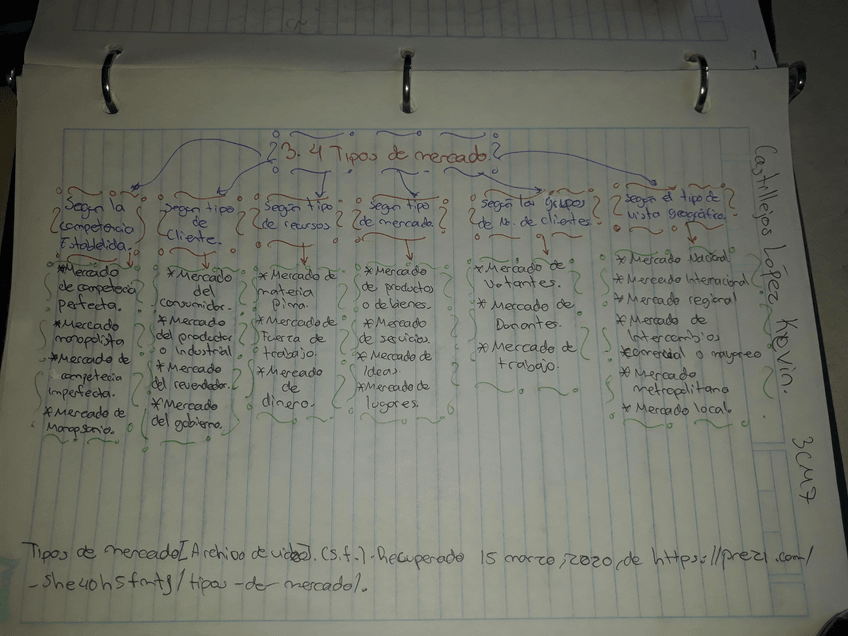 3.4 Tipos de mercado
Según la
competencia
Establecida.
*Mercado
de competencia
perfecta.
*Mercado
monopolista
*Mercado de
competecia
imperfecta.
*Mercado de
Monopsonio.
Según tipo
de
Cliente.
*Mercado
del
consumidor.
*Mercado
del productor
o industrial
*Mercado
del revendedor.
*Mercado
del gobierno.
Según tipo
de recursos
*Mercado de
materia
Prima.
*Mercado de
fuerza de
trabajo.
*Mercado
de
dinero.
Según tipo
de mercado.
*Mercado
de productos
o de bienes.
*Mercado
de servicios.
*Mercado de
Ideas.
*Mercado de
lugares.
Según los grupos
de No. de clientes.
*Mercado de
Votantes.
*Mercado de
Donantes.
*Mercado de
trabajo.
Según el tipo de
vista geográfica.
*Mercado Nacional
*Mercado Internacional
*Mercado regional
*Mercado de
Intercambios
comercial o mayoreo
*Mercado
metropolitano
*Mercado local.
Castrillejos López Kevin.
3CM7
Tipos de mercado[Archivo de video]. (s.f.). Recuperado 15 marzo, 2020, de https://prezi.com/